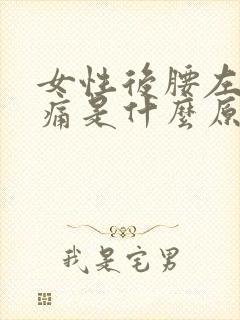 女性後腰左
痛是什麼原
我是宅男